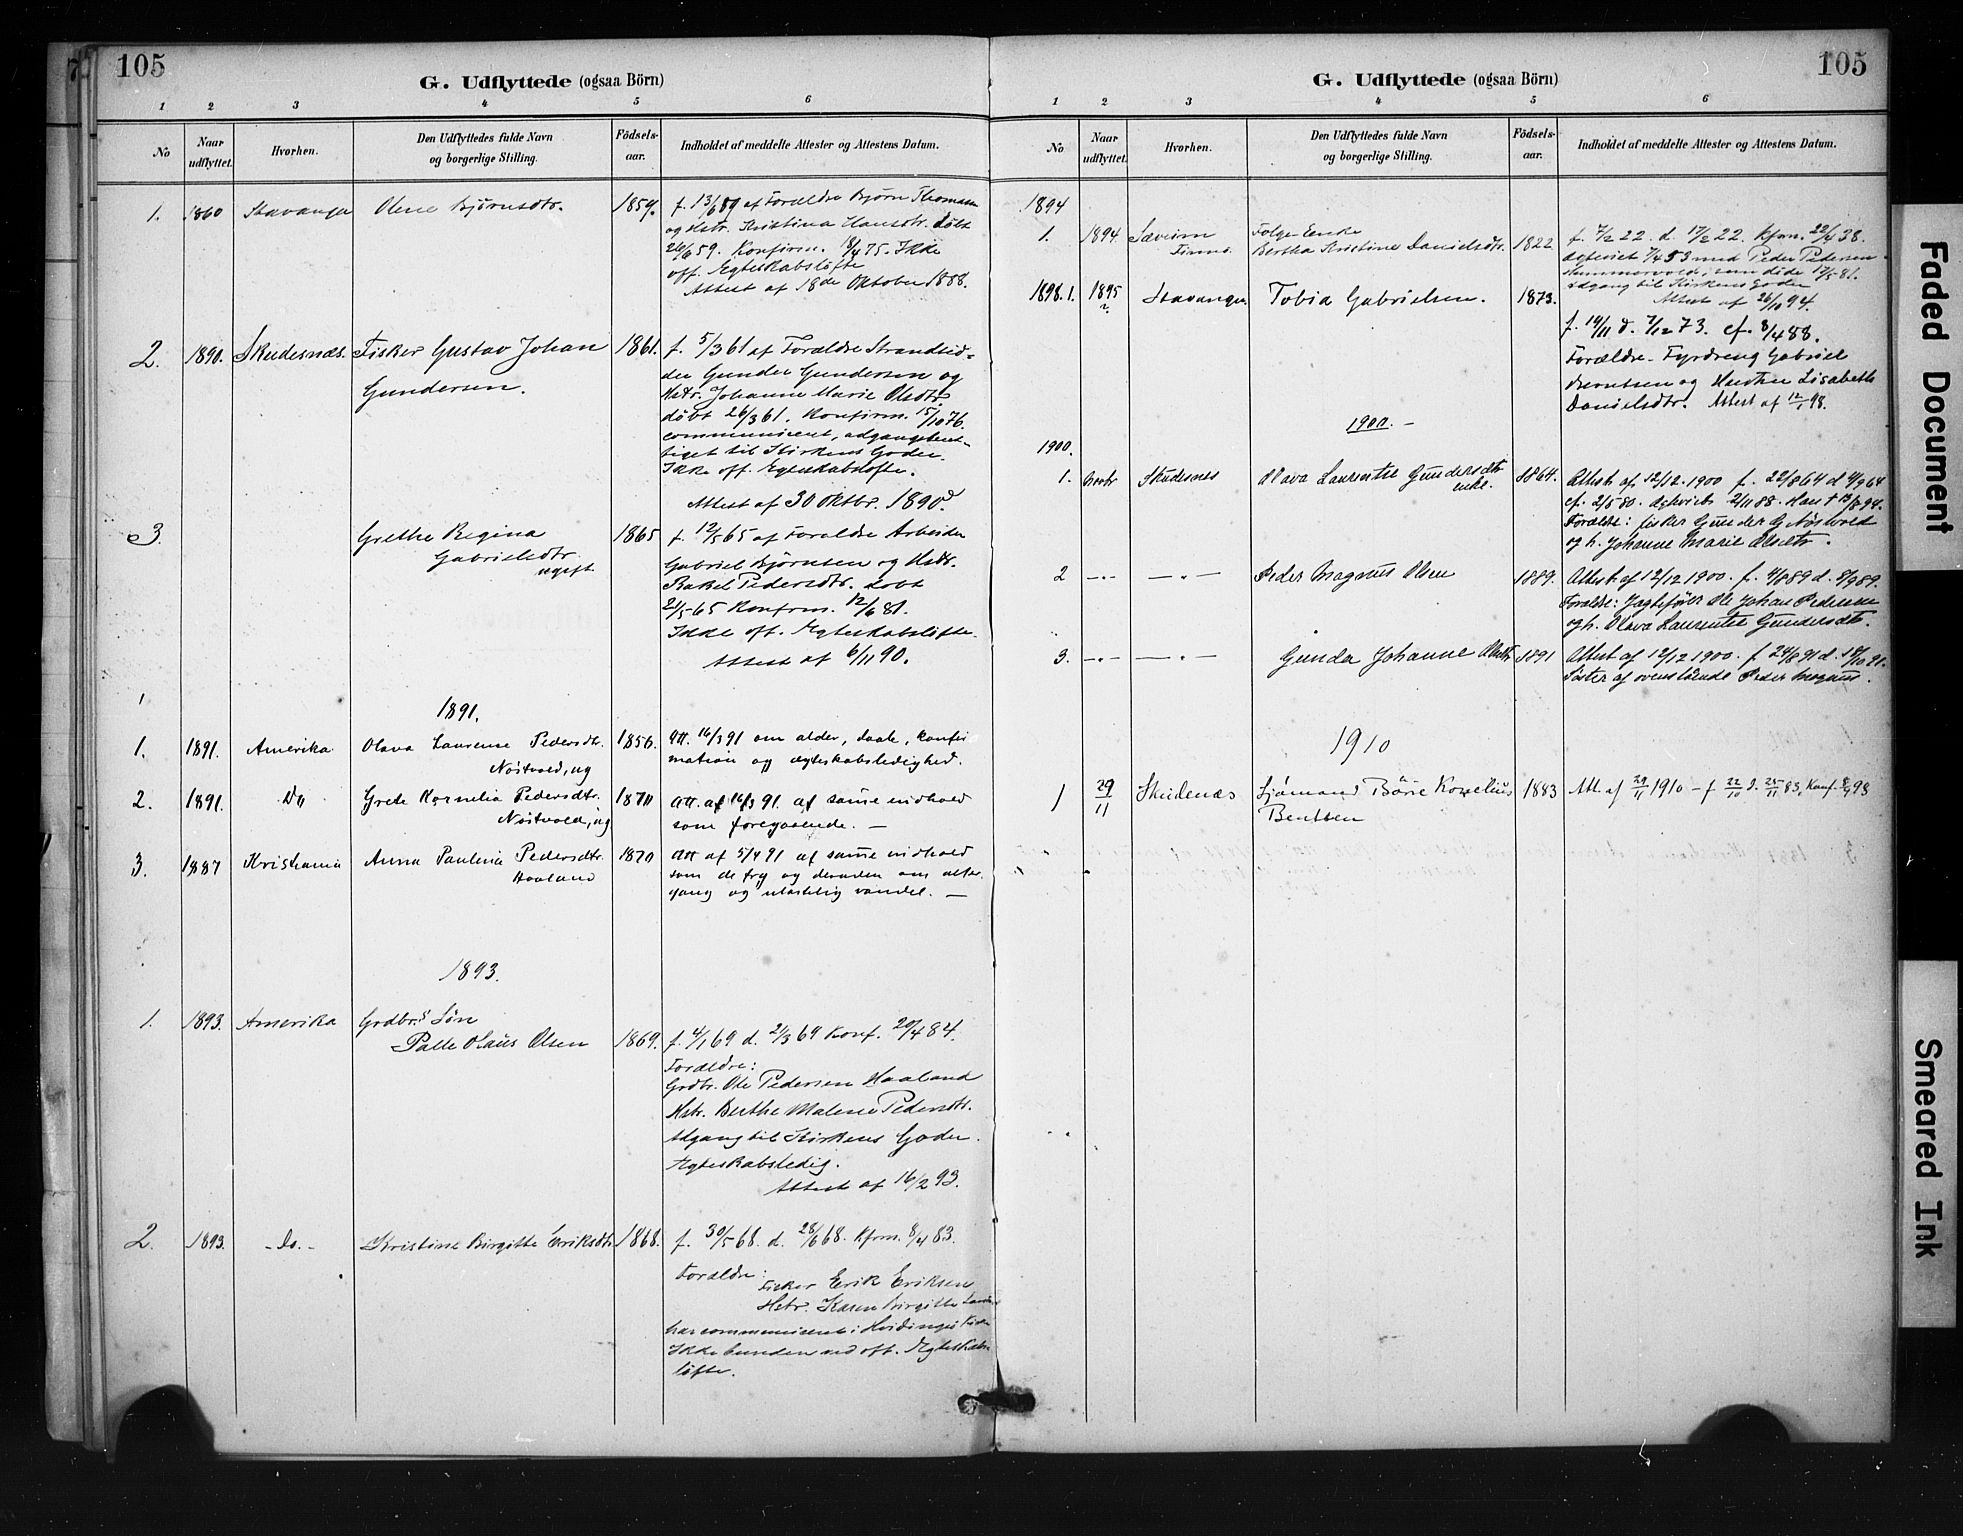 105
G. Udflyttede (ogsaa Börn)
1 2 3 4 5 6
No
Naar udflyttet.
Hvorhen.
Den Udflyttedes fulde Navn og borgerlige Stilling.
Födsels-aar.
Indholdet af meddelte Attester og Attestens Datum.
1. 1860 Stavanger Olene Bjørnsdtr. 1859. f. 13/6 59 af Forældre Bjørn Thomsen
og Hstr. Kristina Hansdtr. døbt
26/6 59. Konfirm. 18/4 75. Ikke
off. Egteskabsløfte
Attest af 18de Oktober 1888.
2. 1890. Skudesnæs. Fisker Gustav Johan 1861. f. 5/3 61 af Forældre Strandsid-
Gundersen. der Gunder Gundersen og
Hstr. Johanne Marie Olsdtr.
døbt 26/3 61. Konfirm. 15/10 76.
communiceret, adgangsberet-
tiget til Kirkens Goder.
Ikke off. Egteskabsløfte.
Attest af 30 Oktbr. 1890.
3. Grethe Regina 1865 f. 12/5 65 af Forældre Arbeider
Gabrielsdtr. Gabriel Bjørnsen og Hstr.
ugift Rakel Pedersdtr. døbt
21/5 65 Konfirm. 12/6 81.
Ikke off. Egteskabsløfte.
Attest af 6/11 90.
1891.
1. 1891. Amerika Olava Laurense Pedersdtr. 1856. Att. 16/3 91 om alder, daab, konfir
Nöstvold, ug mation og ægteskabsledighed.
2. 1891. Do Grete Kornelia Pedersdtr. Att. af 16/3 91. af samme indhold
Nöstvold, ug som foregaaende. —
3. 1887 Kristiania Anna Pauline Pedersdtr. 1870 Att af 5/4 91 af samme indhold
Haaland som de frg og desuden om alter
gang og ulastelig vandel. —
1893.
1. 1893. Amerika Grdbr.s Søn
Palle Olaus Olsen 1869. f. 4/1 69 d. 21/3 69 Konf. 20/4 84.
Forældre:
Grdbr. Ole Pedersen Haaland
Hstr. Berthe Malene Pedersdtr.
Adgang til Kirkens Goder.
Egteskabsledig.
Attest af 16/2 93.
2. 1893. -Do.- Kristine Birgitte Eriksdtr. 1868. f. 30/5 68. d. 28/6 68. Kfrm. 8/4 83.
Forældre:
Fisker Erik Eriksen
Hstr. Karen Birgitte
har communiceret i Hvidingsö Kirke
Ikke bunden ved off. Egteskabs
löfte.
105
G. Udflyttede (ogsaa Börn)
1 2 3 4 5 6
No
Naar udflyttet.
Hvorhen.
Den Udflyttedes fulde Navn og borgerlige Stilling.
Födsels-aar.
Indholdet af meddelte Attester og Attestens Datum.
1894
1. 1894. Følge-Enke
Bertha Kristine Danielsdtr. 1822 f. 7/2 22. d. 17/2 22. Kfrm. 22/4 38.
Egteviet 7/4 53 med Peder Pedersen
som döde 17/5 81.
Adgang til Kirkens Goder
Attest af 26/10 94.
1898. 1. 1895 Stavanger Tobia Gabrielsen. 1873. f. 14/11 d. 7/12 73. cf. 8/4 88.
Forældre- Fyrdreng Gabriel
Berentsen og Hustru Lisabeth
Danielsdtr. Attest af 12/1 98.
1900. -
1900.
1. Skudesnes Olava Laurentse Gundersdtr 1864. Attest af 12/12 1900 f. 22/8 64 d 4/9 64
enke. cf. 2/5 80. Egteviet 2/11 88. Han † 13/8 94.
Forældre: fisker Gunder G. Nöstvold
og h. Johanne Marie Olsdtr.
2 -„- — „ — Peder Magnus Olsen 1889. Attest af 12/12 1900. f. 4/8 89 d. 8/9 89.
Forældre: Jægtefører Ole Johan Pedersen
og h. Olava Laurentse Gundersdtr.
3. -„- — „ — Gunda Johanne Olsdtr 1891 Attest af 12/12 1900. f 24/8 91 d. 18/10 91.
Søster af ovenstående Peder Magnus.
1910
1 29/11 Skudenæs Sjømand Börie Kornelius 1883 Att. af 29/11 1910 - f 22/10 d. 25/11 83, Konf. 8/4 98
Bentsen
Faded Document
Smeared Ink